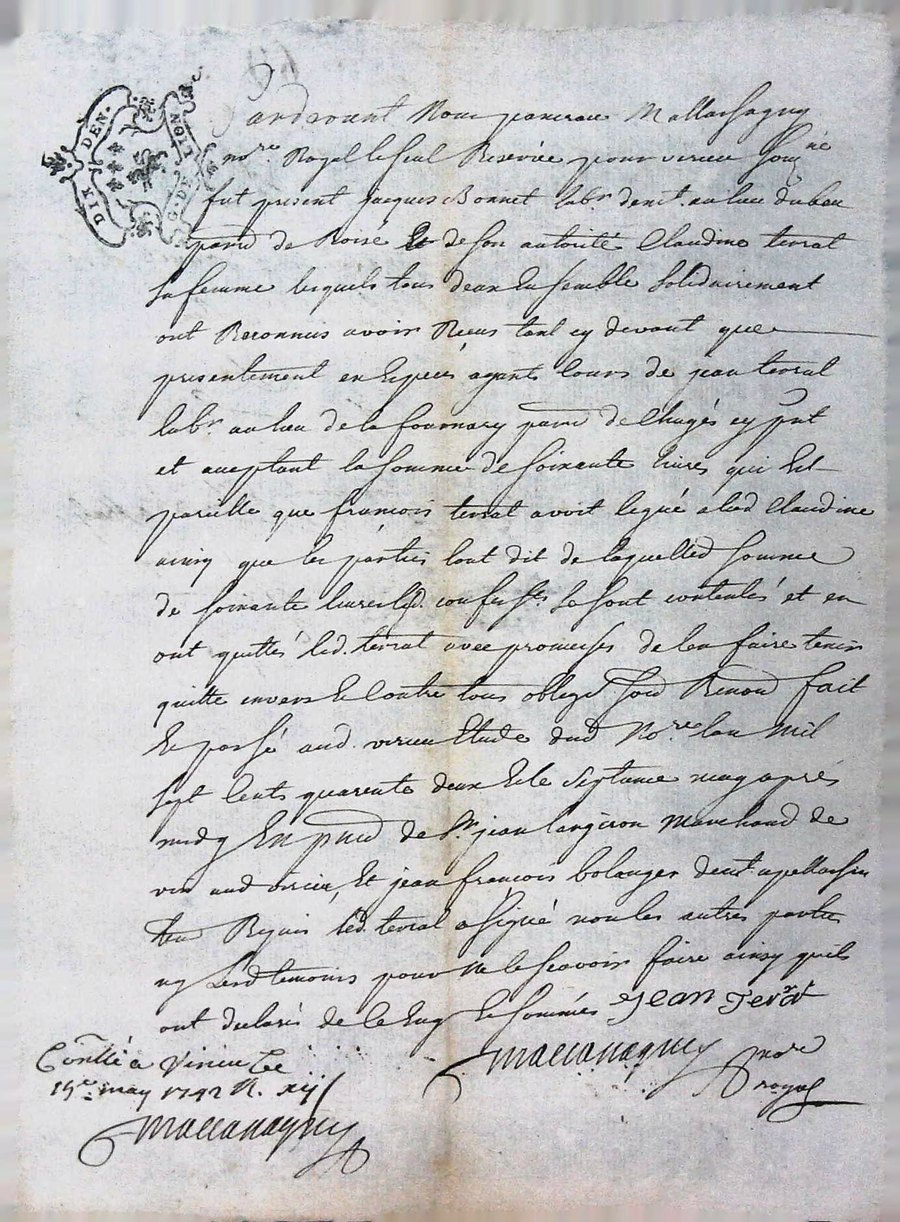 DIX DEN.
G. DE LION
Pardevant Nous
no.re Royal le seul Reservé pour virieu sou.né
fut present jacques Bonnet lab.r dem.t au lieu du
parr.e de Roisé et de son autorité Claudine terrat
sa femme lesquels tous deux ensemble solidairement
ont Reconnus avoir Receus tant cy devant que
presentement en especes ayants cours de jean terrat
lab.r au lieu de la parr.e de Chugés cy p.nt
et aceptant la somme de soixante livres qui est
pareille que francois terrat avoit legué a lad Claudine
ainsy que les parties l'ont dit de laquelle d somme
de soixante livres lesd. se sont contentés et en
ont quittés led. terrat avec promesses de l'en faire tenir
quitte envers et contre tous oblige soud Renond fait
et passé aud. virieu Etude dud No.re l'an mil
sept cents quarente deux et le septieme may après
midy En p.nce de S.r jean marchand de
vin aud virieu, Et jean françois dem.t
Requis led. terrat a signé non les autres parties
ny lesd temoins pour ne le sçavoir faire ainsy qu'ils
ont declarés de ce Enq et sommés Jean Terrat
no.re
royal
Con.llé à Virieu Le
may 1742 R. xij s